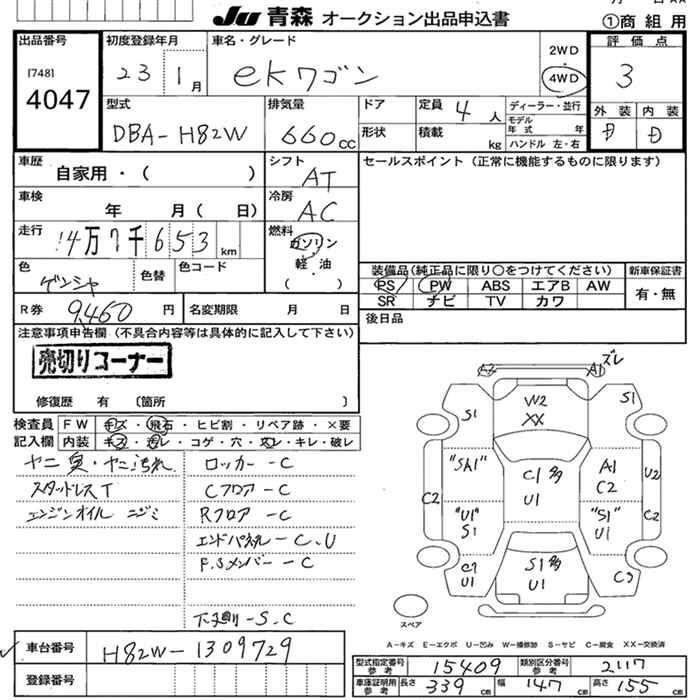 Ju 青森 オークション出品申込書
①商組用
出品番号
[748]
4047
初度登録年月
23 1月
車名・グレード
ekワゴン
2WD
4WD
評価点
3
外装 内装
D D
型式
DBA-H82W
排気量
660cc
ドア
形状
定員 4人
積載 kg
ディーラー・並行
モデル年式 年
ハンドル 左・右
車歴
自家用・( )
シフト
AT
セールスポイント(正常に機能するものに限ります)
車検
年 月( 日)
冷房
AC
走行
14万7千653km
燃料
ガソリン
軽・油
( )
色
ゲンシャ
色替
色コード
装備品(純正品に限り○をつけてください)
新車保証書
PS PW ABS エアB AW
SR ナビ TV カワ
有・無
R券 9,460円
名変期限 月 日
後日品
注意事項申告欄(不具合内容等は具体的に記入して下さい)
売切りコーナー
修復歴 有 〔箇所 〕
検査員 FW キズ・飛石・ヒビ割・リペア跡・×要
記入欄 内装 キズ・汚レ・コゲ・穴・欠レ・キレ・破レ
ヤニ臭・ヤニ汚れ ロッカー-C
スタッドレスT Cフロア-C
エンジンオイル ニジミ Rフロア-C
エンドパネル-C、U
F.Sメンバー-C
下廻り-S、C
A2 A1 ズレ
S1 W2 XX S1
"SA1" C1多 U1 A1 C2 U2
C2 "U1" S1 "S1" U1 C2
C1 U1 S1多 U1 C2
スペア
A-キズ E-エクボ U-凹み W-補修跡 S-サビ C-腐食 XX-交換済
車台番号 H82W-1309729
登録番号
型式指定番号 参考 15409 類別区分番号 参考 2117
車庫証明用 参考 長さ 339cm 幅 147cm 高さ 155cm